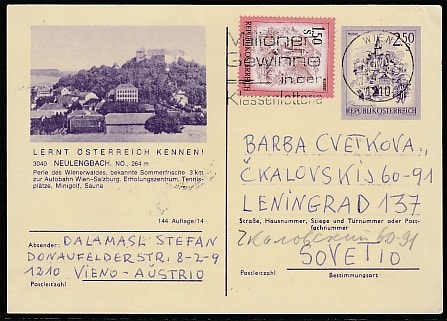 LERNT ÖSTERREICH KENNEN!
3040 NEULENGBACH, NÖ., 264 m
Perle des Wienerwaldes, bekannte Sommerfrische 3 km
zur Autobahn Wien-Salzburg. Erholungszentrum, Tennis-
plätze, Minigolf, Sauna
144 Auflage/14
Absender: DALAMASL STEFAN
DONAUFELDERSTR. 8-2-9
1210 VIENO-AŬSTRIO
Postleitzahl
Millionen
Gewinne
in der
Klassenlotterie
1.50
S
REPUBLIK ÖSTERREICH
WIEN
1210
2.50
REPUBLIK ÖSTERREICH
BARBA CVETKOVA.,
ĈKALOVSKIJ 60-91
LENINGRAD 137
Straße, Hausnummer, Stiege und Türnummer oder Post-
fachnummer
Чкаловский 60-91
SOVETIO
Postleitzahl Bestimmungsort